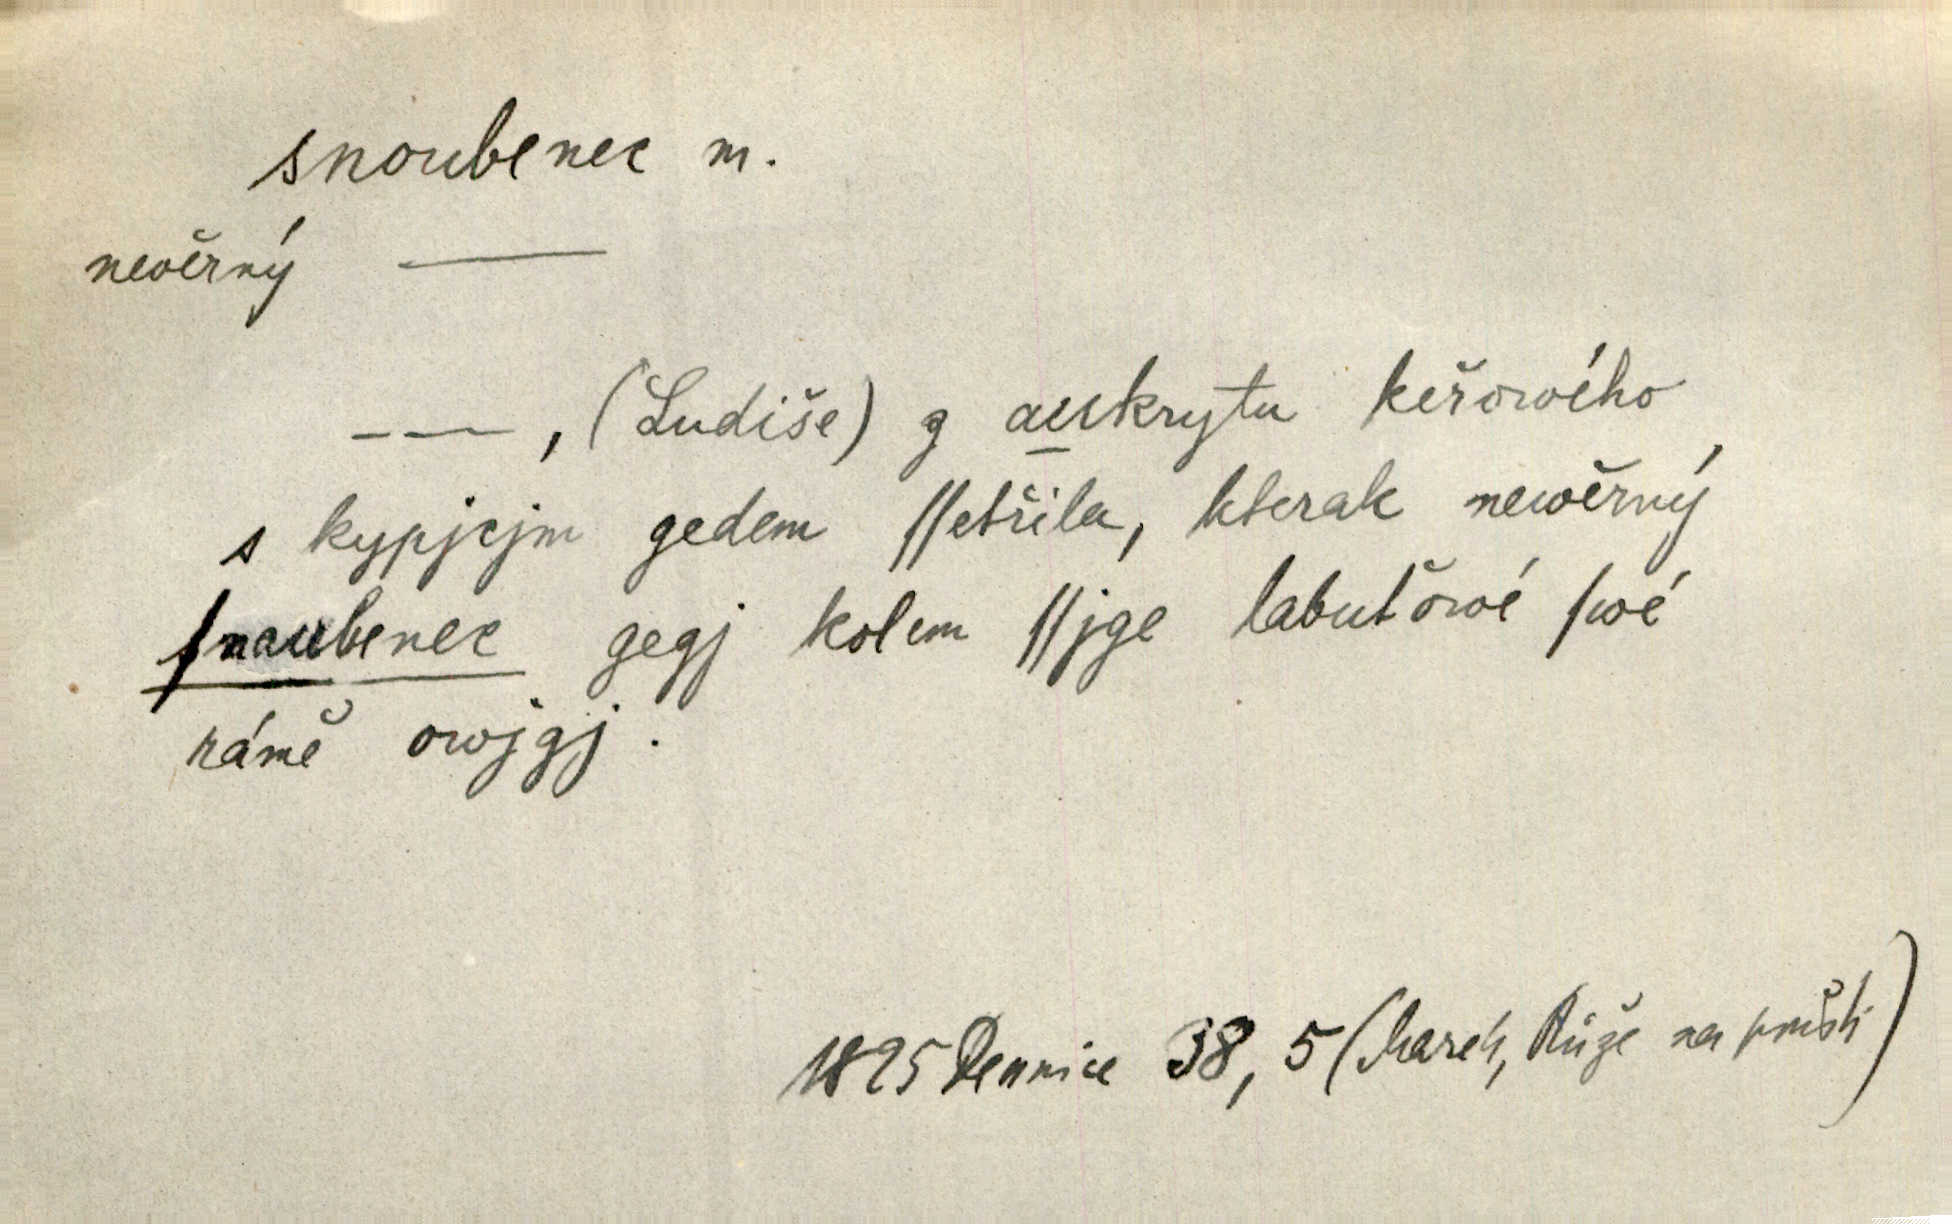 snoubenec m.
newěrný ———
– — —, (Ludiše) g aukrytu keřowého,
s kypjcjm gedem ſſetřila, kterak newěrný
ſnaubenec gegj kolem ſſjge labuťowé ſwé
rámě owjgj.
1825 Dennice 38, 5 (Marek, Růže na poušti)